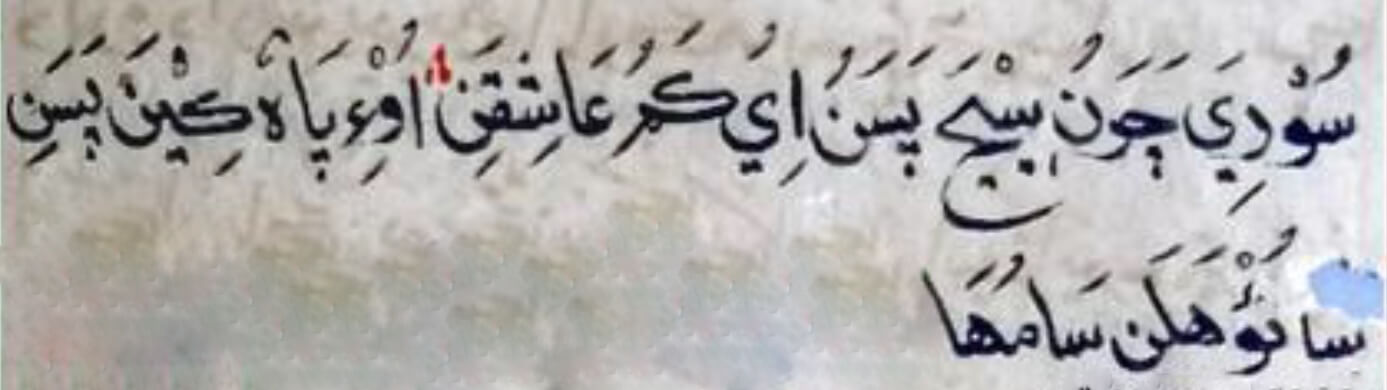 سُوْرِيَ چَوَنُ سِيْجَ پَسَنُ اِيُ كَمُ عَاشِقَنِ اُوْءِ پَاهْ كِيْنَ پَسَنِ
سائُوْ هَلَن سَامُهَا